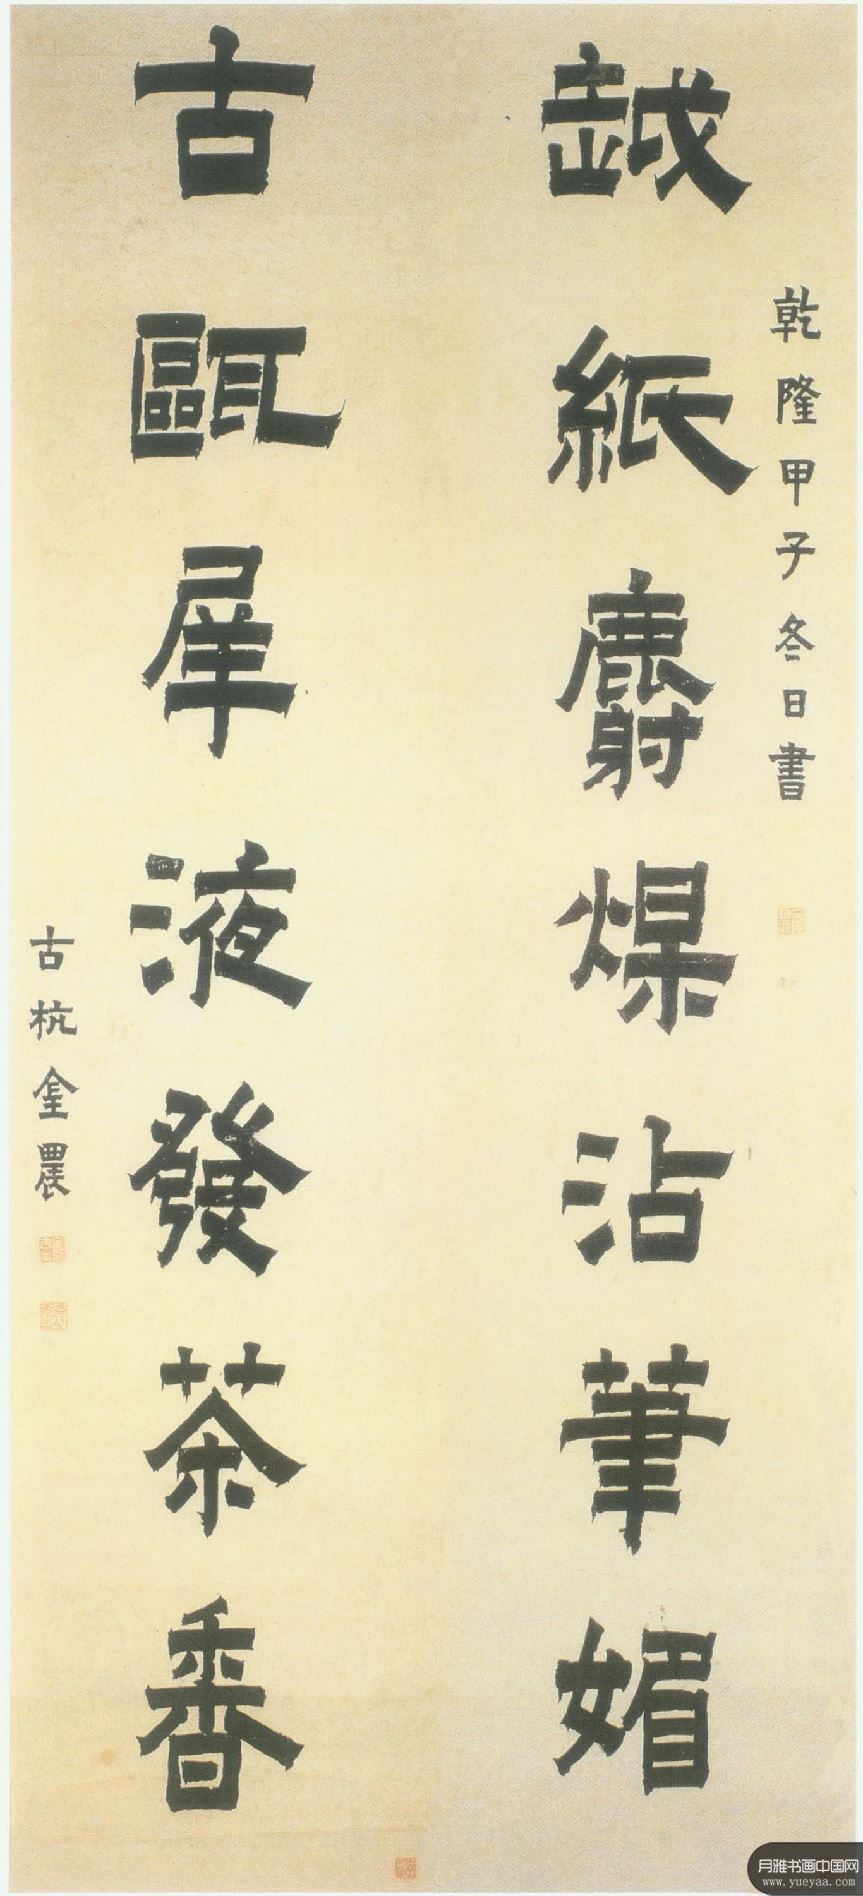 乾隆甲子冬日書
越紙麝煤沾筆媚
古甌犀液發茶香
古杭金農
月雅书画中国网
www.yueyaa.com